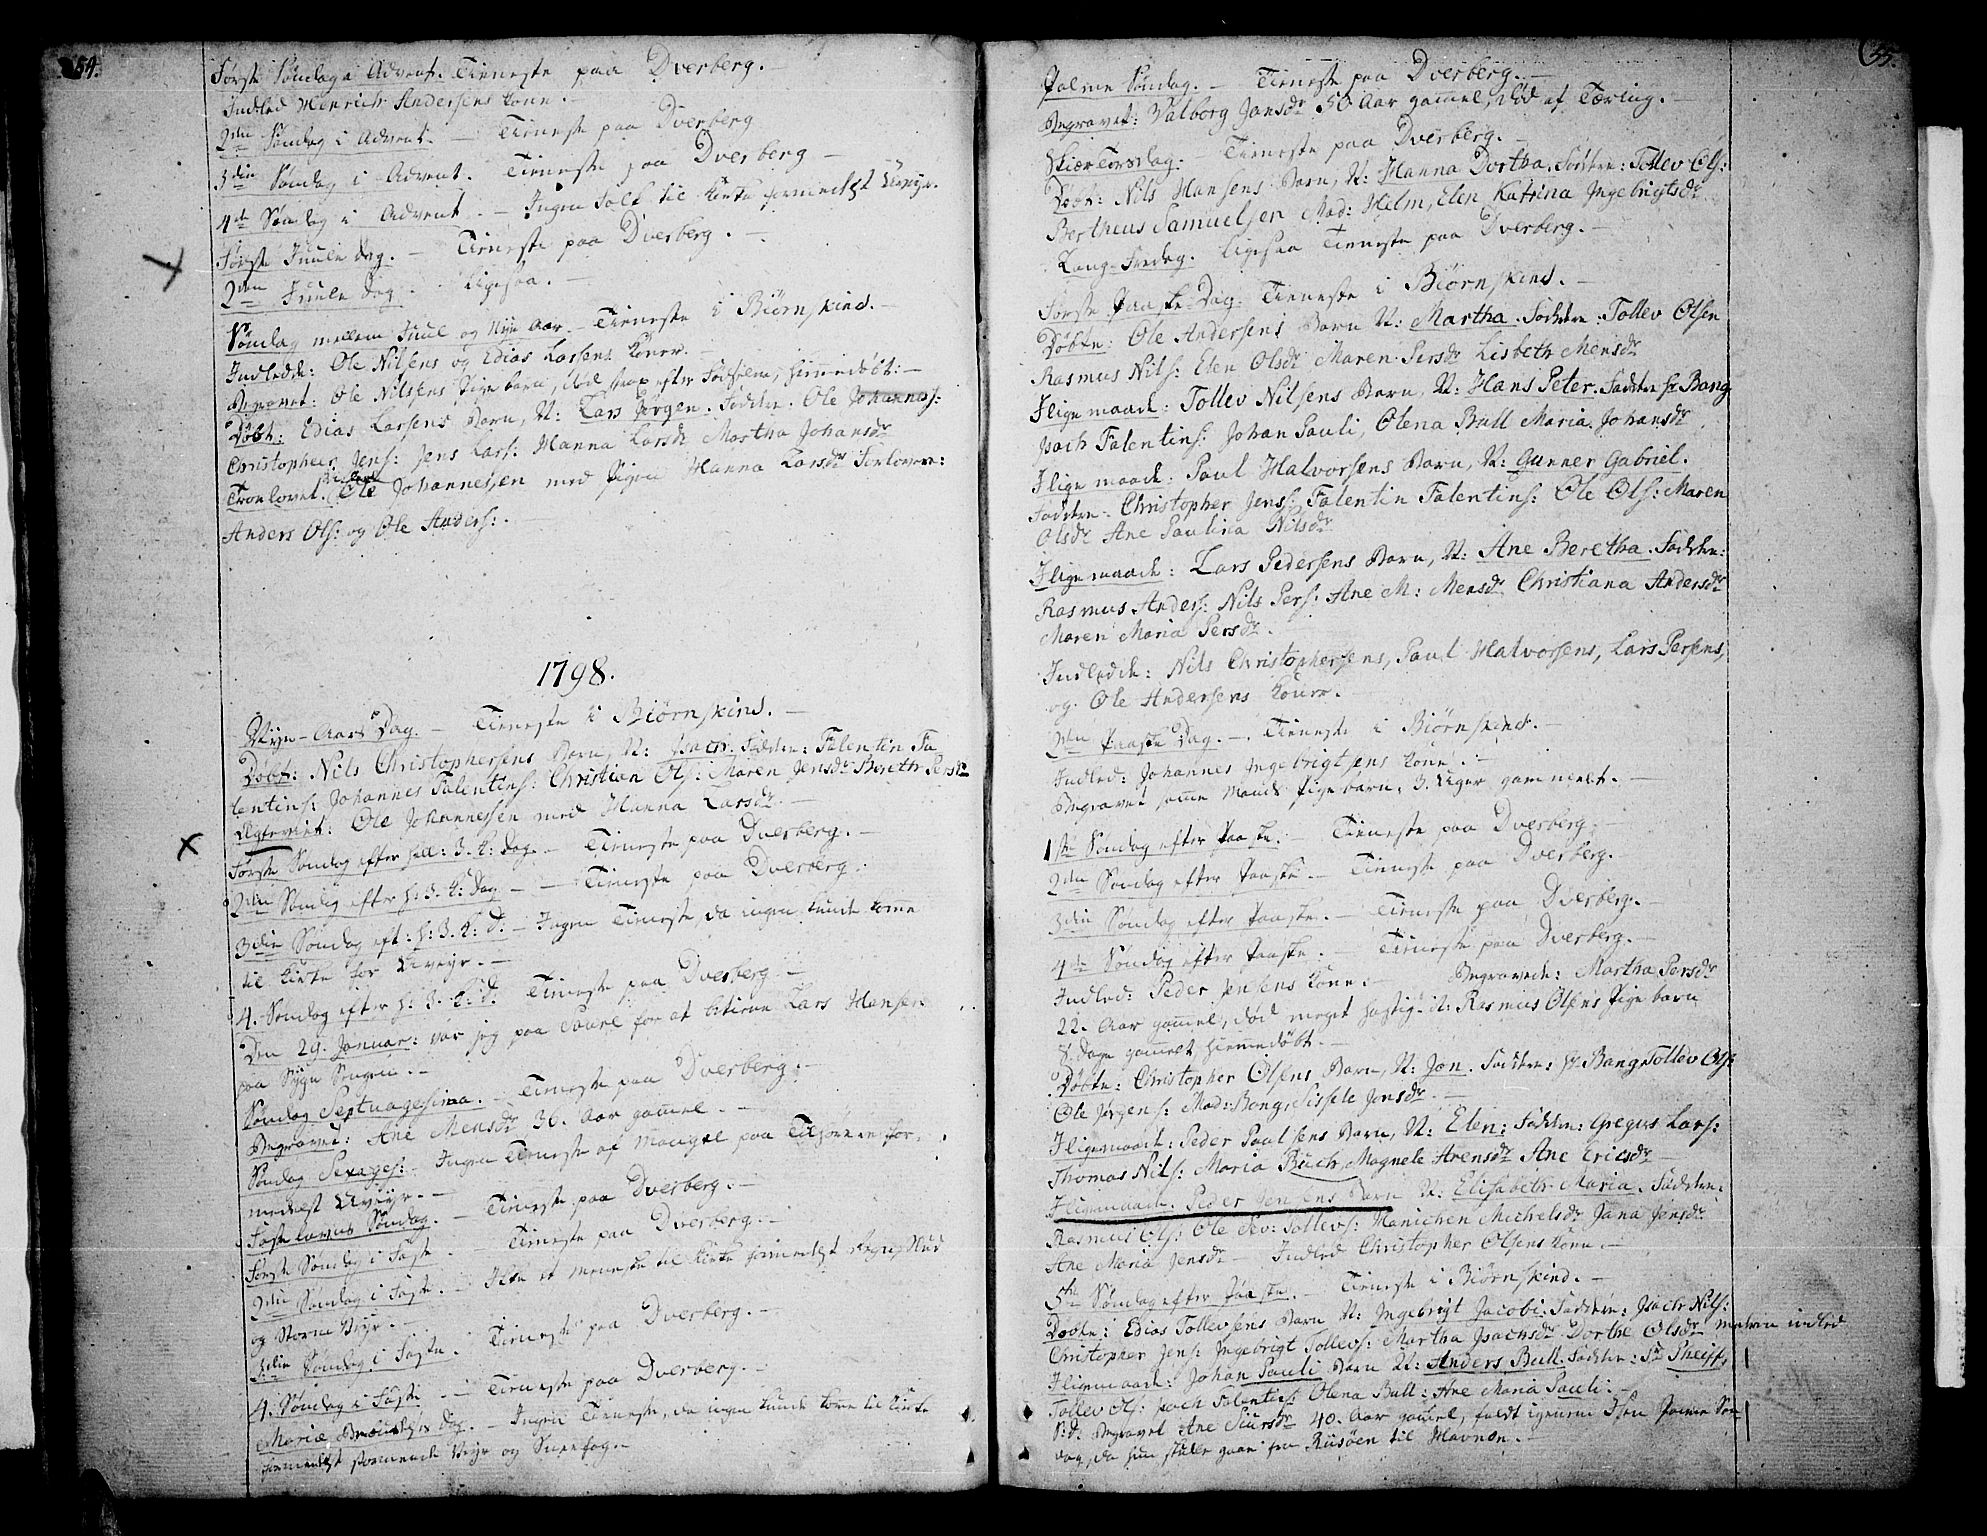 54.
Første Søndag i Advent. Tieneste paa Dverberg. —
Indled Henrich Andersens Kone. —
2den Søndag i Advent. — Tieneste paa Dverberg
3die Søndag i Advent. Tieneste paa Dverberg —
4de Søndag i Advent. — Ingen Folk til Kirke formedelst Uveyr.
Første Juule Dag. — Tieneste paa Dverberg. —
2den Juule Dag. Ligesaa. —
Søndag mellem Juul og Nye Aar. — Tieneste i Biørnskind. —
Indledde: Ole Nilsens og Edias Larsens Koner. —
Begravet: Ole Nilsens Pige barn, død strax efter Fødselen, hiemedøbt: —
Døbt: Edias Larsens Barn, N: Lars Jørgen. Faddere. Ole Johannes:
Christopher Jens: Jens Lars: Hanna Larsdr Martha Johansdr
Troelovet. Ole Johannessen med Pigen Hanna Larsdr Forlovere:
Anders Ols: og Ole Anders: —
1798.
Nye-Aars Dag. — Tieneste i Biørnskind. —
Døbt: Nils Christophersens Barn, N: Isach. Faddere: Falentin Fa-
lentins: Johannes Falentins: Christian Ols: Maren Jensdr Bereth Persdr
Egteviet: Ole Johannessen med Hanna Larsdr. —
Første Søndag efter hell: 3. K: Dag. — Tieneste paa Dverberg. —
2den Søndag efter h: 3. K: Dag — — Tieneste paa Dverberg.
3die Søndag eft: h: 3. K: D. — Ingen Tieneste, da ingen kunde komme
til Kirke for Uveyr. —
4. Søndag efter h: 3. K: D. Tieneste paa Dverberg —
Den 29. Januar: var jeg paa for at betiene Lars Hansen
paa Syge Sengen. —
Søndag Septuagesima. — Tieneste paa Dverberg. —
Begravet: Ane Mensdr 36. Aar gammel. —
Søndag Sexages: — Ingen Tieneste af Mangel paa Tilhørere, for-
medelst Uveyr. —
Fastelavns Søndag. — Tieneste paa Dverberg. —
Første Søndag i Faste. — Tieneste paa Dverberg. —
2den Søndag i Faste. — Ikke et Menneske til Kirke formedelst
og Storm Veyr. —
3die Søndag i Faste. — Tieneste paa Dverberg. —
4. Søndag i Faste. — Tieneste paa Dverberg. —
Mariæ Dag. — Ingen Tieneste, da ingen kunde kome til Kirke
formedelst stormende Veyr og Sneefog. —
55.
Palme Søndag. — Tieneste paa Dverberg. —
Begravet: Valborg Jonsdr 50 Aar gamel, død af Tæring. —
SkiærTorsdag. — Tieneste paa Dverberg. —
Døbt: Nils Hansens Barn, N: Hanna Dortha. Faddere: Tollev Ols:
Bertheus Samuelsen Mad: Helm, Elen Katrina Ingebrigtsdr
Lang-Fredag. Ligesaa Tieneste paa Dverberg. —
Første Paaske Dag. Tieneste i Biørnskind. —
Døbte: Ole Andersens Barn N: Martha. Faddere: Tollev Olsen
Rasmus Nils: Elen Olsdr Maren Persdr Lisbeth Mensdr
Iligemaade: Tollev Nilsens Barn, N: Hans Peter. Faddere Hr Bang
Isach Falentins: Johan Pauli, Olena Bull Maria Johansdr
Iligemaade: Paul Halvorsens Barn, N: Gunner Gabriel.
Faddere. Christopher Jens: Falentin Falentins: Ole Ols: Maren
Olsdr Ane Paulina Nilsdr
Iligemaade: Lars Pedersens Barn, N: Ane Beretha. Faddere:
Rasmus Anders: Nils Pers: Ane M: Mensdr Christiana Andersdr
Maren Maria Persdr. —
Indledde: Nils Christophersens, Paul Halvorsens, Lars Persens,
og Ole Andersens Koner. —
2den Paaske Dag. — Tieneste i Biørnskind. —
Indled: Johannes Ingebrigtsens Kone. —
Begravet samme Mands Pige barn, 3. Uger gammelt. —
1ste Søndag efter Paaske. — Tieneste paa Dverberg. —
2den Søndag efter Paaske. — Tieneste paa Dverberg.
3die Søndag efter Paaske. — Tieneste paa Dverberg. —
4de Søndag efter Paaske. — Tieneste paa Dverberg. —
Indled: Peder Jensens Kone. — Begravede: Martha Persdr
22. Aar gamel, død meget hastig. it: Rasmus Olsens Pige barn
8. Dage gamelt hiemedøbt. —
Døbte: Christopher Olsens Barn, N: Jon. Faddere: Hr Bang, Tollev Ols:
Ole Jørgens: Mad: Bang, Sissele Jensdr. —
Iligemaade: Peder Paulsens Barn, N: Elen: Faddere: Gregus Lars:
Thomas Nils: Maria Buch, Magnele Arensdr Ane Ericsdr —
Iligemaade. Peder Jensens Barn N: Elisabeth Maria. Faddere:
Rasmus Ols: Ole Sev: Tollevs: Hanichen Michelsdr Jana Jensdr
Ane Maria Jensdr — Indled Christopher Olsens Kone. —
5te Søndag efter Paaske. — Tieneste i Biørnskind. —
Døbte: Edias Tollevsens Barn N: Ingebrigt Jacobi. Faddere: Isach Nils:
Christopher Jens: Ingebrigt Tollevs: Martha Isachsdr Dorthe Olsdr moderen indled
Iligemaade: Johan Pauli Barn N: Anders Bull. Faddere: Sr Pheiff,
Tollev Ols: Isach Falentins: Olena Bull: Ane Maria Pauli. —
N.d. Begravet Ane Siursdr 40. Aar gamel, faldt igiennem Isen Palme Søn-
dag, da hun skulle gaae fra Risøen til Havnen. —